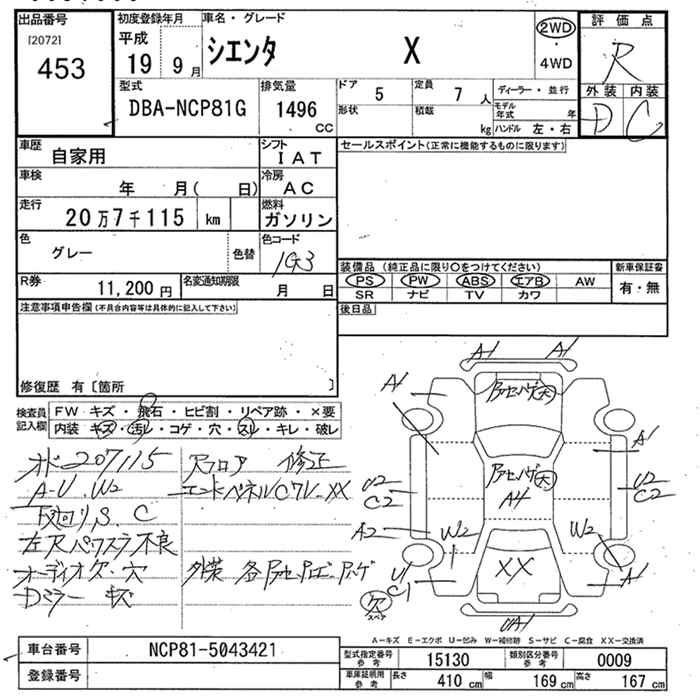 出品番号
[2072]
453
初度登録年月
平成
19 9月
車名・グレード
シエンタ X
2WD
・
4WD
評価点
R
外装 内装
D C
型式
DBA-NCP81G
排気量
1496
CC
ドア 5
形状
定員 7 人
積載 kg
ディーラー・並行
モデル年式 年
ハンドル 左・右
車歴
自家用
シフト
IAT
車検 年 月( 日)
冷房
AC
走行
20万7千115 km
燃料
ガソリン
色
グレー
色替
色コード
1G3
R券
11,200円
名変通知期限
月 日
セールスポイント(正常に機能するものに限ります)
装備品 (純正品に限り○をつけてください)
PS PW ABS エアB AW
SR ナビ TV カワ
新車保証書
有・無
後日品
注意事項申告欄(不具合内容等は具体的に記入して下さい)
修復歴 有〔箇所 〕
検査員記入欄
FW キズ・飛石・ヒビ割・リペア跡・×要
内装 キズ・汚レ・コゲ・穴・スレ・キレ・破レ
オド 207115
A-U. W2
下廻りS. C
左Rパワスラ不良
オーディオ欠・穴
Dミラー キズ
Rフロア 修正
エンドパネルCワレ-XX
外装
A1 A1
A1
A1
U2
C2
U2
C2
A4
A2
W2
W2
U1
C1
A1
XX
欠
スペア
UA1
A-キズ E-エクボ U-凹み W-補修跡 S-サビ C-腐食 XX-交換済
車台番号
NCP81-5043421
登録番号
型式指定番号
参考
15130
類別区分番号
参考
0009
車庫証明用
参考
長さ 410 cm
幅 169 cm
高さ 167 cm